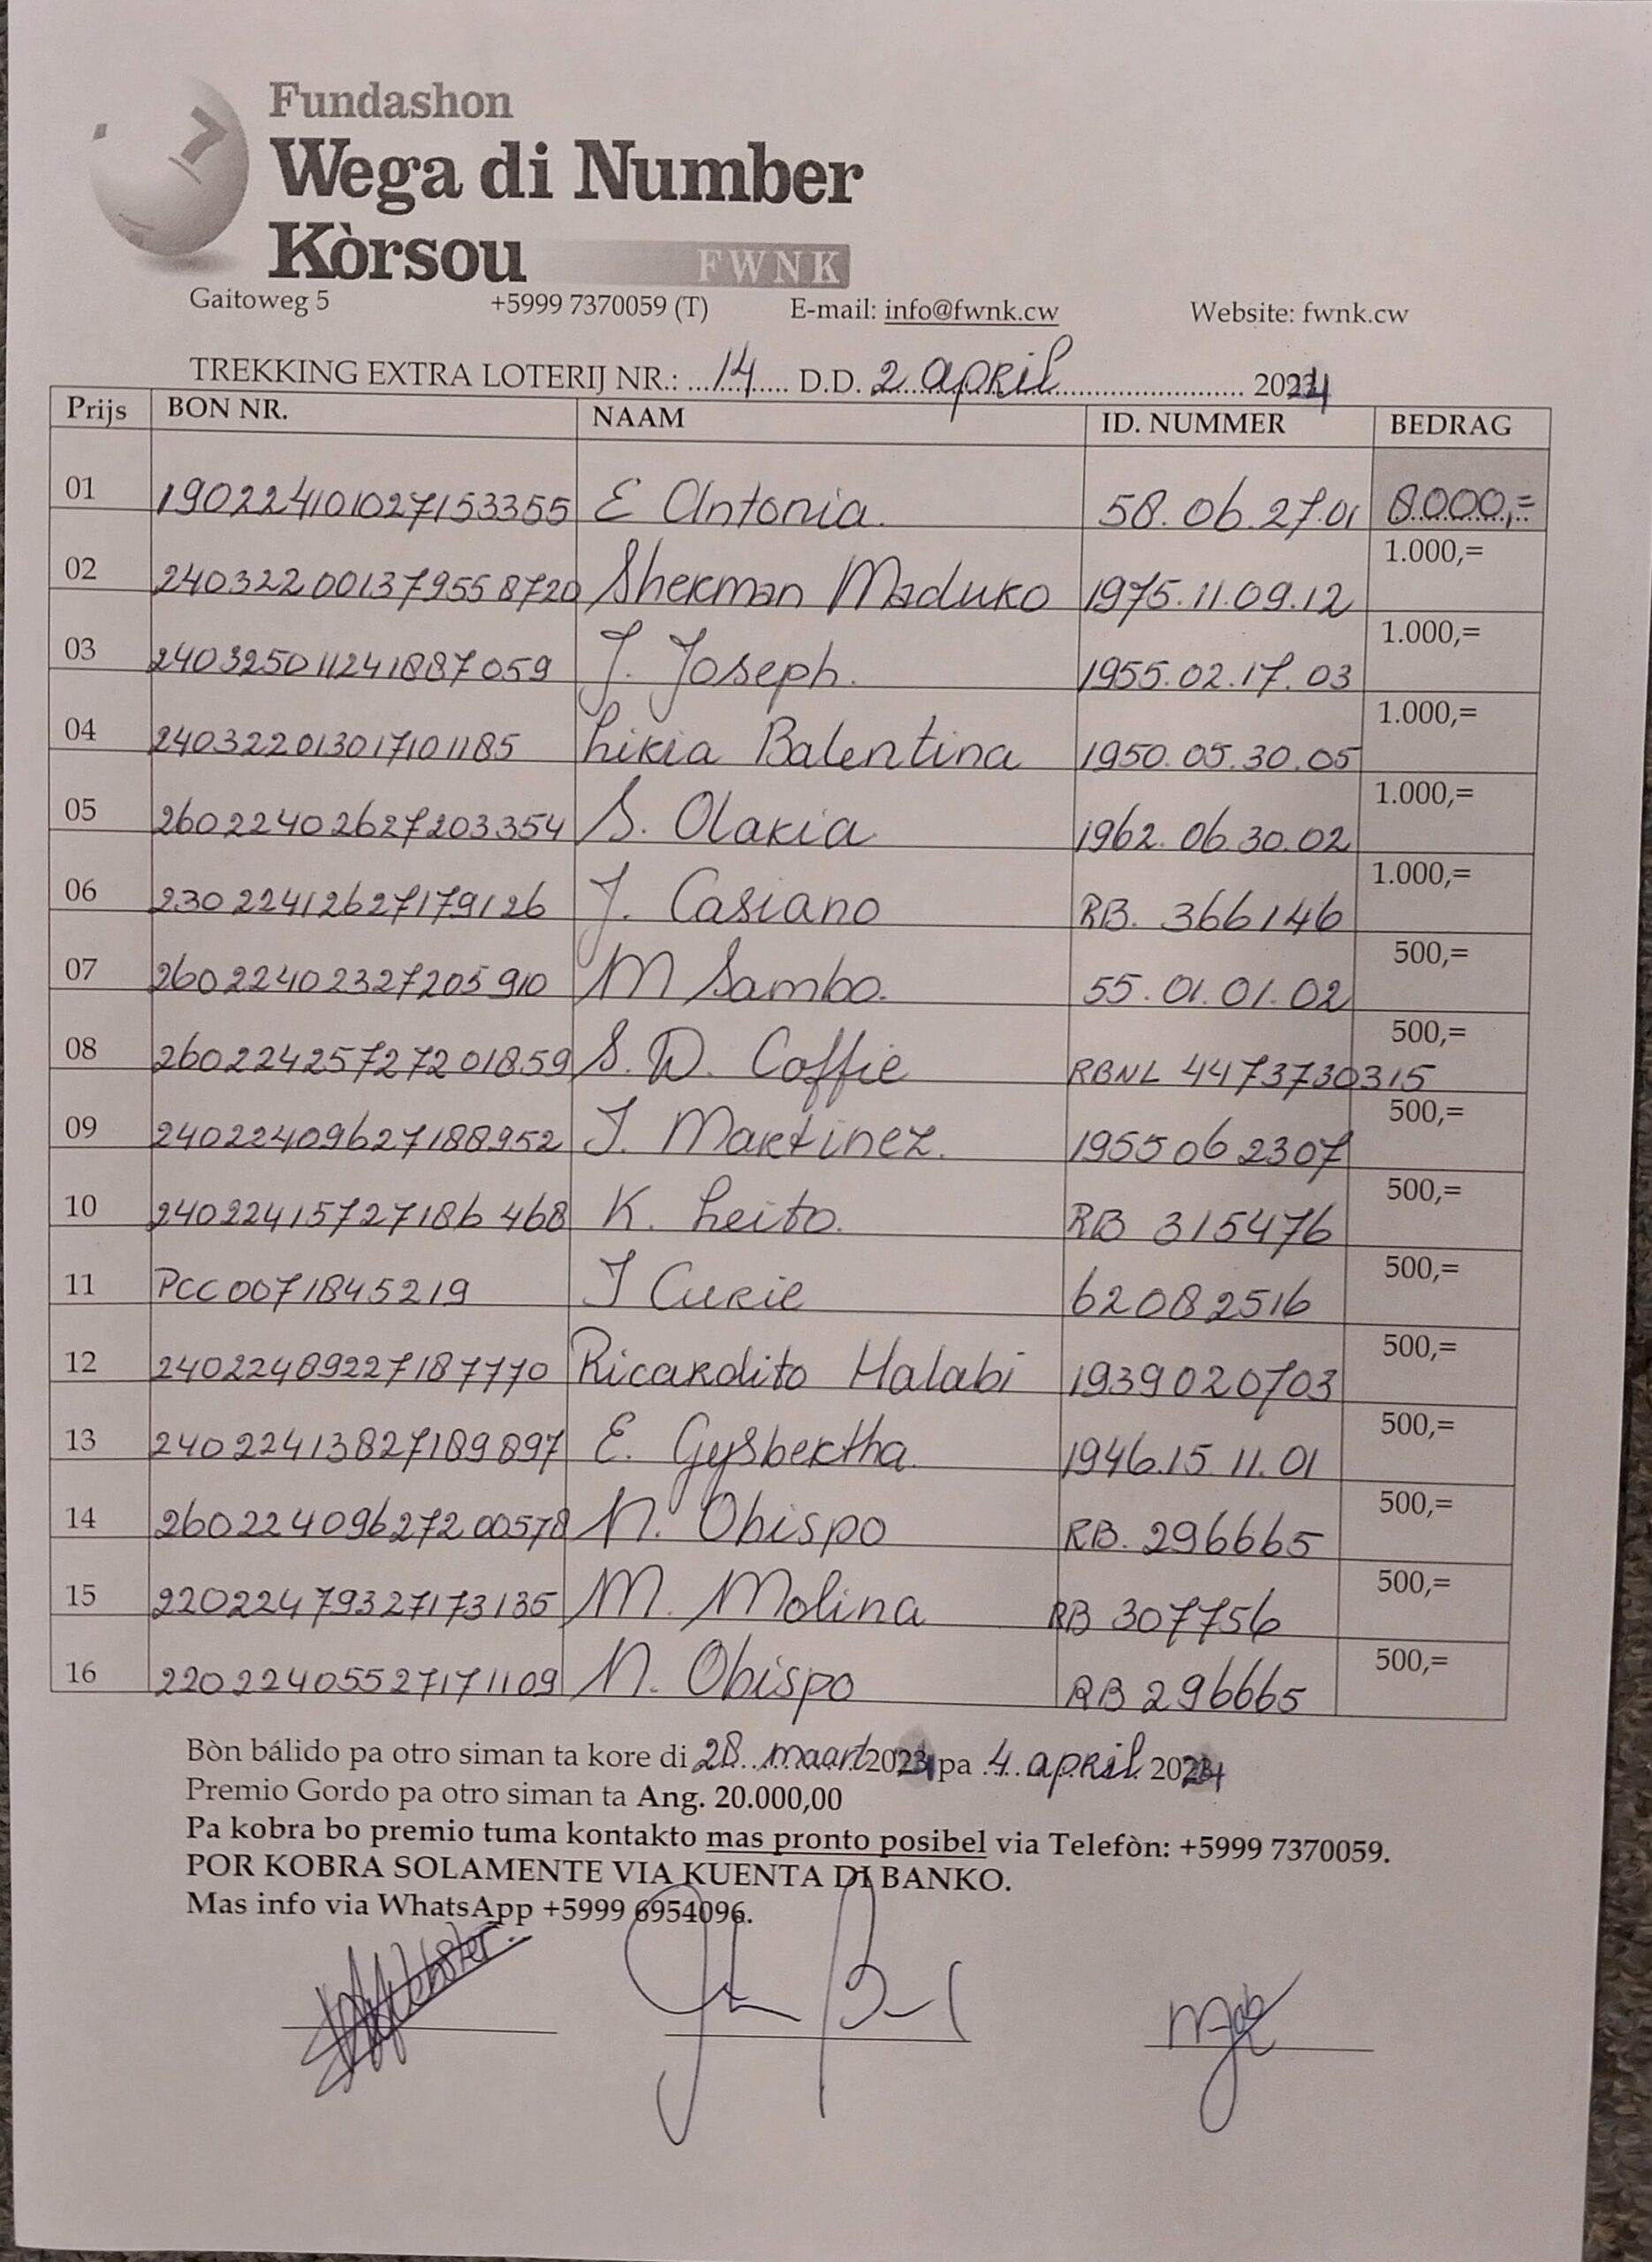 7
Fundashon
Wega di Number
Kòrsou
FWNK
Gaitoweg 5 +5999 7370059 (T) E-mail: info@fwnk.cw Website: fwnk.cw
TREKKING EXTRA LOTERIJ NR.: 14 D.D. 2 april 2024
Prijs BON NR. NAAM ID. NUMMER BEDRAG
01 190224101027153355 E Antonia. 58.06.27.01 8.000,=
02 240322001379558720 Sherman Maduro 1975.11.09.12 1.000,=
03 240325011241887059 J. Joseph. 1955.02.17.03 1.000,=
04 240322013017101185 Likia Balentina 1950.05.30.05 1.000,=
05 26022402627203354 S. Olaria 1962.06.30.02 1.000,=
06 23022412627179126 J. Casiano RB. 366146 1.000,=
07 26022402327205910 M Sambo. 55.01.01.02 500,=
08 26022425727201859 S. D. Coffie RBNL 4473730315 500,=
09 24022409627188952 J. Martinez. 1955062307 500,=
10 24022415727186468 K. Leito. RB 315476 500,=
11 PCC0071845219 J Curie 62082516 500,=
12 24022489227187770 Ricardito Halabi 1939020703 500,=
13 24022413827189897 E. Gysbertha. 1946.15.11.01 500,=
14 26022409627200578 N. Obispo RB. 296665 500,=
15 22022479327173135 M. Molina RB 307756 500,=
16 22022405527171109 N. Obispo RB 296665 500,=
Bòn bálido pa otro siman ta kore di 28 maart 2024 pa 4 april 2024
Premio Gordo pa otro siman ta Ang. 20.000,00
Pa kobra bo premio tuma kontakto mas pronto posibel via Telefòn: +5999 7370059.
POR KOBRA SOLAMENTE VIA KUENTA DI BANKO.
Mas info via WhatsApp +5999 6954096.